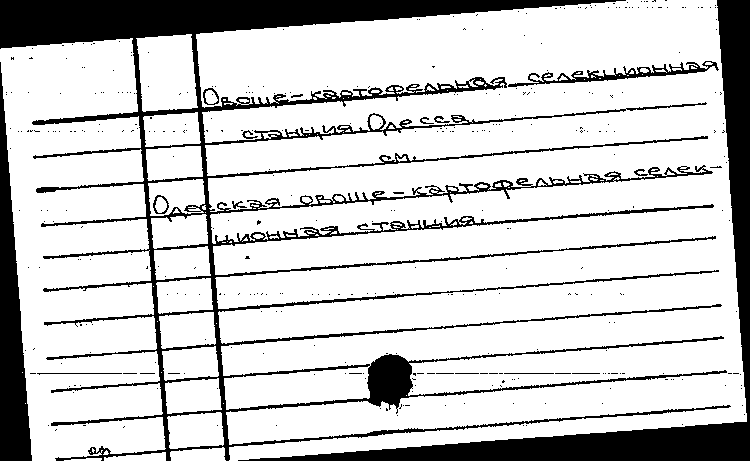 Овоще-картофельная селекционная
станция. Одесса.
см.
Одесская овоще-картофельная селек-
ционная станция.